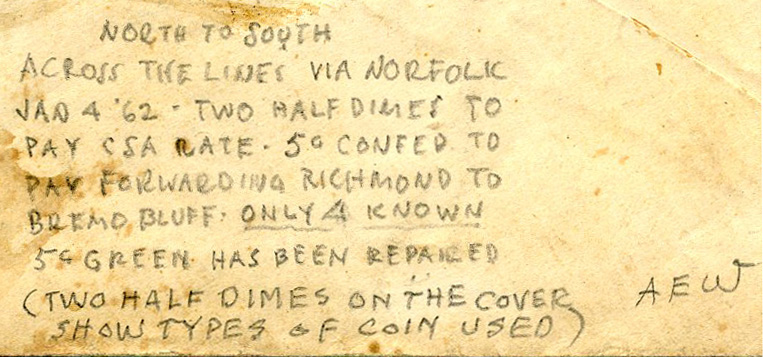 NORTH TO SOUTH
ACROSS THE LINES VIA NORFOLK
JAN 4 '62 - TWO HALF DIMES TO
PAY CSA RATE. 5¢ CONFED TO
PAY FORWARDING RICHMOND TO
BREMO BLUFF. ONLY 4 KNOWN
5¢ GREEN HAS BEEN REPAIRED
(TWO HALF DIMES ON THE COVER
SHOW TYPES OF COIN USED)
AEW